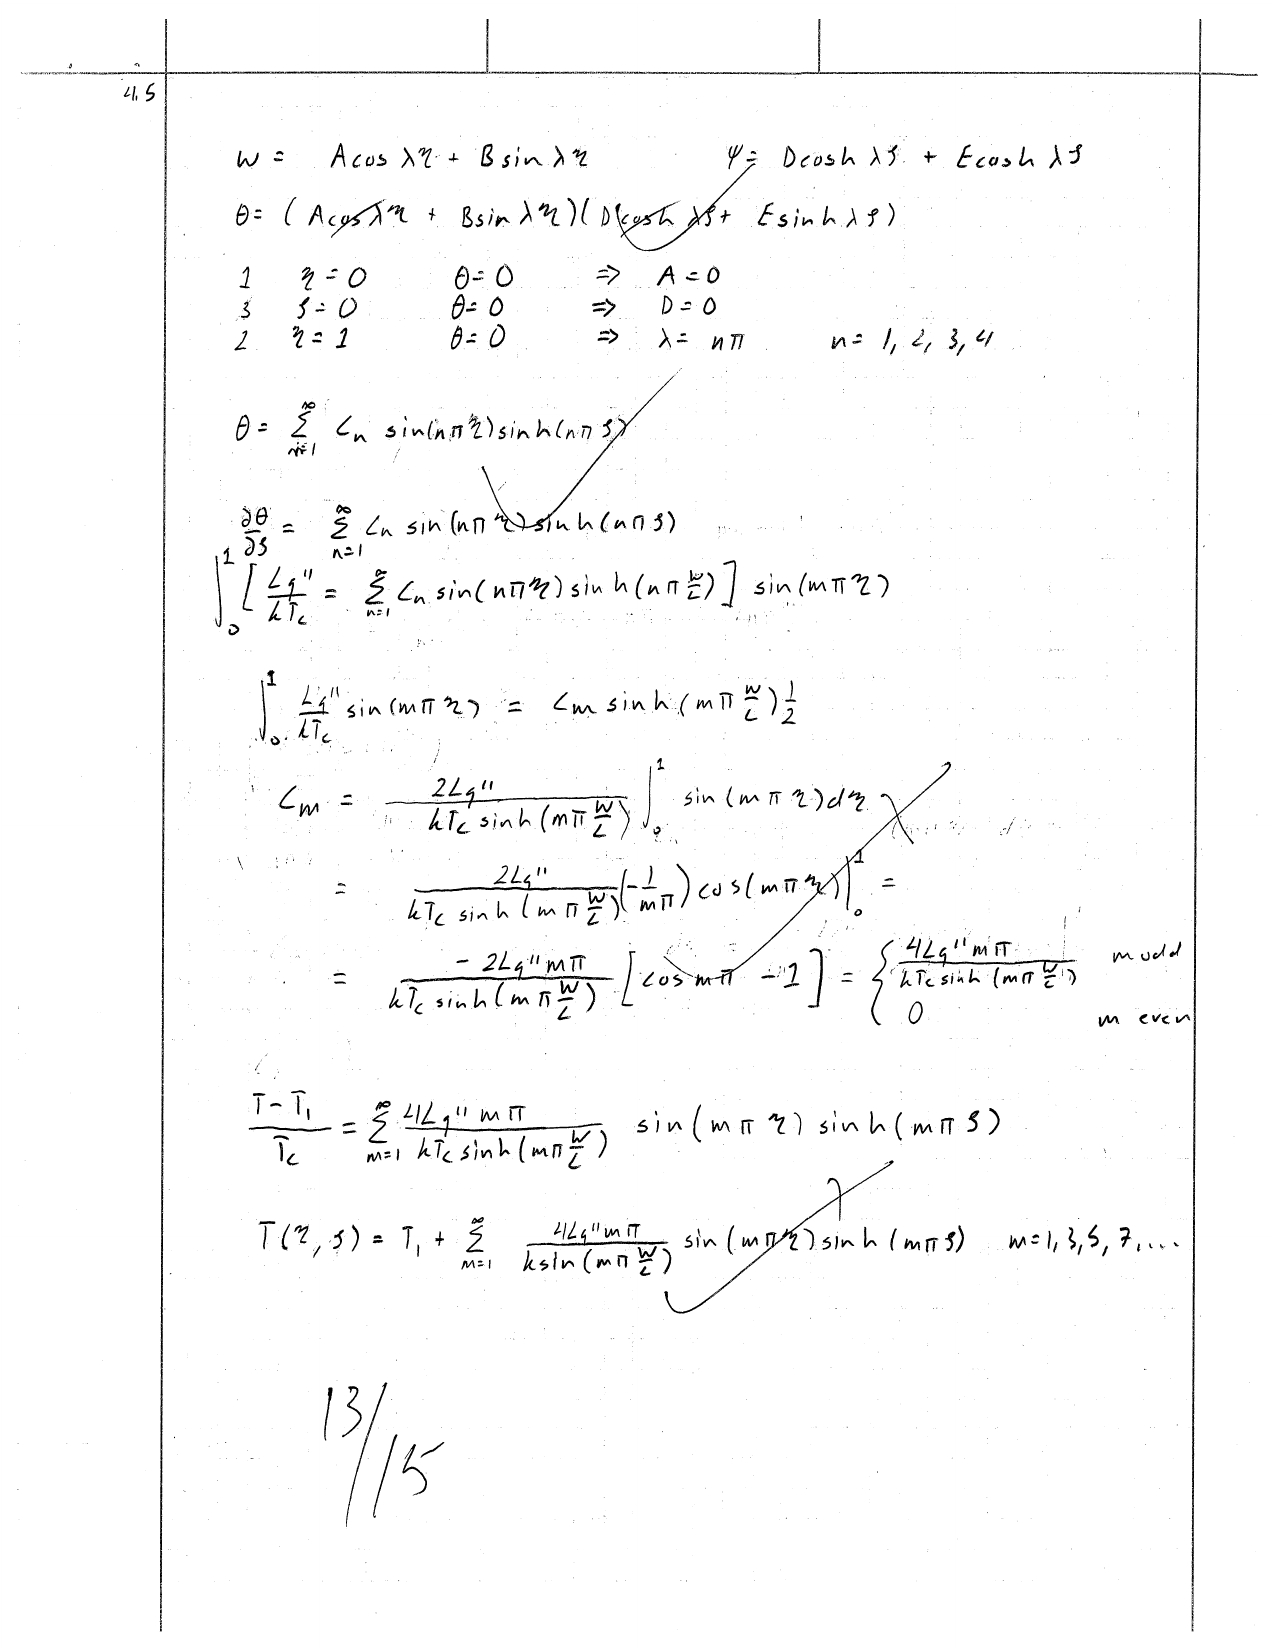 4.5
w = A cos λη + B sin λη    ψ = D cosh λζ + E cosh λζ
θ = (A cos λη + B sin λη)(D cosh λζ + E sinh λζ)
1  η = 0  θ = 0  ⇒  A = 0
3  ζ = 0  θ = 0  ⇒  D = 0
2  η = 1  θ = 0  ⇒  λ = nπ  n = 1, 2, 3, 4
θ = ∑_{n=1}^{∞} C_n sin(nπη) sinh(nπζ)
∂θ/∂ζ = ∑_{n=1}^{∞} C_n sin(nπη) sinh(nπζ)
∫_0^1 [ Lq''/kT_c = ∑_{n=1}^{∞} C_n sin(nπη) sinh(nπ W/L) ] sin(mπη)
∫_0^1 Lq''/kT_c sin(mπη) = C_m sinh(mπ W/L) 1/2
C_m = 2Lq''/(kT_c sinh(mπ W/L)) ∫_0^1 sin(mπη)dη
= 2Lq''/(kT_c sinh(mπ W/L)) (-1/mπ) cos(mπη)|_0^1 =
= -2Lq''mπ/(kT_c sinh(mπ W/L)) [cos mπ - 1] = { 4Lq''mπ/(kT_c sinh(mπ W/L))  m odd
0  m even
(T - T_1)/T_c = ∑_{m=1}^{∞} 4Lq''mπ/(kT_c sinh(mπ W/L)) sin(mπη) sinh(mπζ)
T(η, ζ) = T_1 + ∑_{m=1}^{∞} 4Lq''mπ/(k sin(mπ W/L)) sin(mπη) sinh(mπζ)  m = 1, 3, 5, 7, ....
13/15